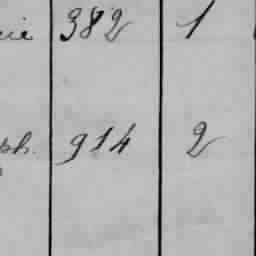 rie 382 1
ph. 914 2